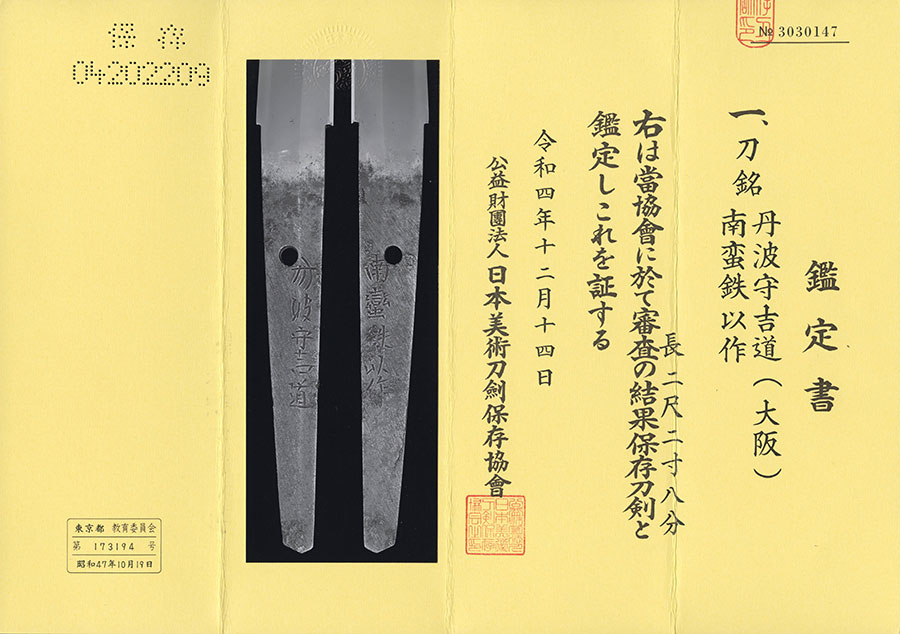 № 3030147
鑑定書
一、刀 銘 丹波守吉道(大阪)
南蛮鉄以作
長二尺二寸八分
右は當協會に於て審査の結果保存刀剣と
鑑定しこれを証する
令和四年十二月十四日
公益財團法人 日本美術刀劍保存協會
丹波守吉道
南蠻鐵以作
保存
04202209
東京都 教育委員会
第 173194 号
昭和47年10月19日